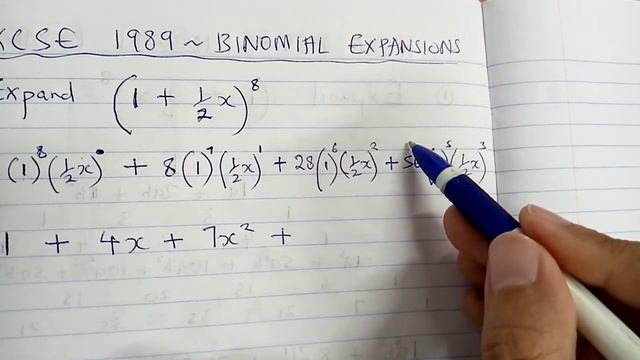 KCSE 1989 ~ BINOMIAL EXPANSIONS
Expand (1 + 1/2 x)^8
(1)^8 (1/2 x)^0 + 8(1)^7 (1/2 x)^1 + 28(1)^6 (1/2 x)^2 + 5 )^5 (1/2 x)^3
1 + 4x + 7x² +